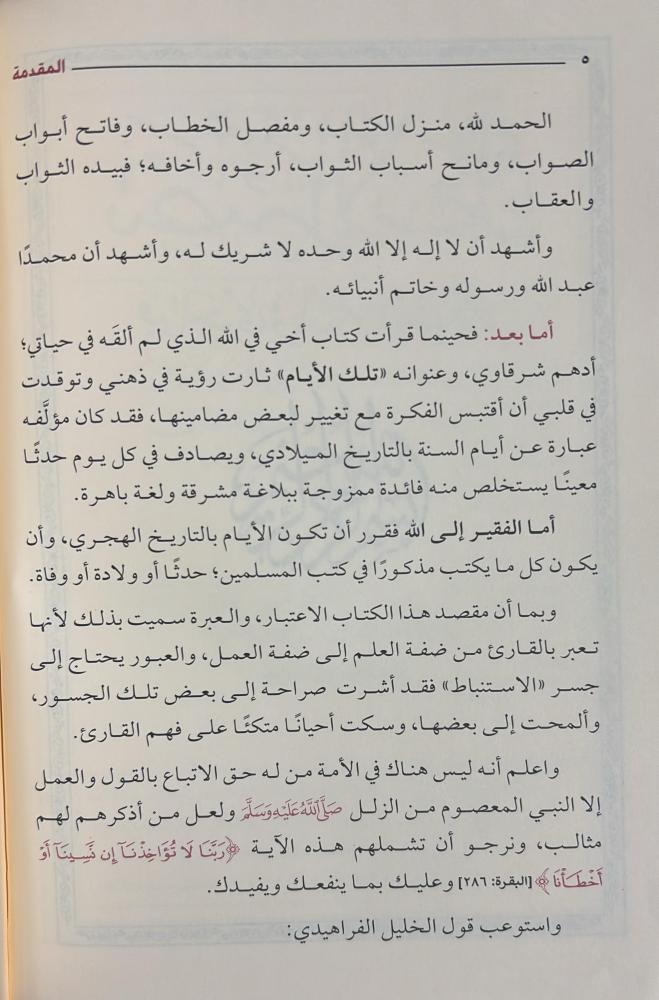 ٥ المقدمة
الحمد لله، منزل الكتاب، ومفصل الخطاب، وفاتح أبواب
الصواب، ومانح أسباب الثواب، أرجوه وأخافه؛ فبيده الثواب
والعقاب.
وأشهد أن لا إله إلا الله وحده لا شريك له، وأشهد أن محمدًا
عبد الله ورسوله وخاتم أنبيائه.
أما بعد: فحينما قرأت كتاب أخي في الله الذي لم ألقَه في حياتي؛
أدهم شرقاوي، وعنوانه «تلك الأيام» ثارت رؤية في ذهني وتوقدت
في قلبي أن أقتبس الفكرة مع تغيير لبعض مضامينها، فقد كان مؤلَّفه
عبارة عن أيام السنة بالتاريخ الميلادي، ويصادف في كل يوم حدثًا
معينًا يستخلص منه فائدة ممزوجة ببلاغة مشرقة ولغة باهرة.
أما الفقير إلى الله فقرر أن تكون الأيام بالتاريخ الهجري، وأن
يكون كل ما يكتب مذكورًا في كتب المسلمين؛ حدثًا أو ولادة أو وفاة.
وبما أن مقصد هذا الكتاب الاعتبار، والعبرة سميت بذلك لأنها
تعبر بالقارئ من ضفة العلم إلى ضفة العمل، والعبور يحتاج إلى
جسر «الاستنباط» فقد أشرت صراحة إلى بعض تلك الجسور،
وألمحت إلى بعضها، وسكت أحيانًا متكئًا على فهم القارئ.
واعلم أنه ليس هناك في الأمة من له حق الاتباع بالقول والعمل
إلا النبي المعصوم من الزلل صَلَّى اللَّهُ عَلَيْهِ وَسَلَّمَ ولعل من أذكرهم لهم
مثالب، ونرجو أن تشملهم هذه الآية ﴿رَبَّنَا لَا تُؤَاخِذْنَآ إِن نَّسِينَآ أَوْ
أَخْطَأْنَا﴾ [البقرة: ٢٨٦] وعليك بما ينفعك ويفيدك.
واستوعب قول الخليل الفراهيدي: